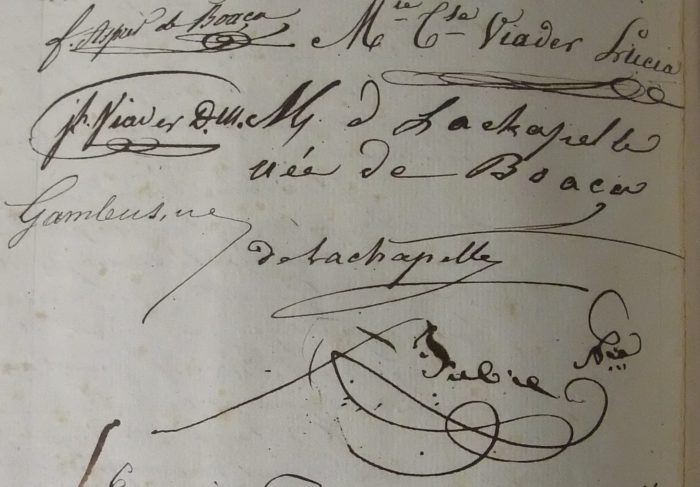 f. Asper de Boaça
M.ie C.se Viader Lucia
jh. Viader D.M. M. d Lachapelle
née de Boaça
Gambus, ne
de Lachapelle
Jubie N.re